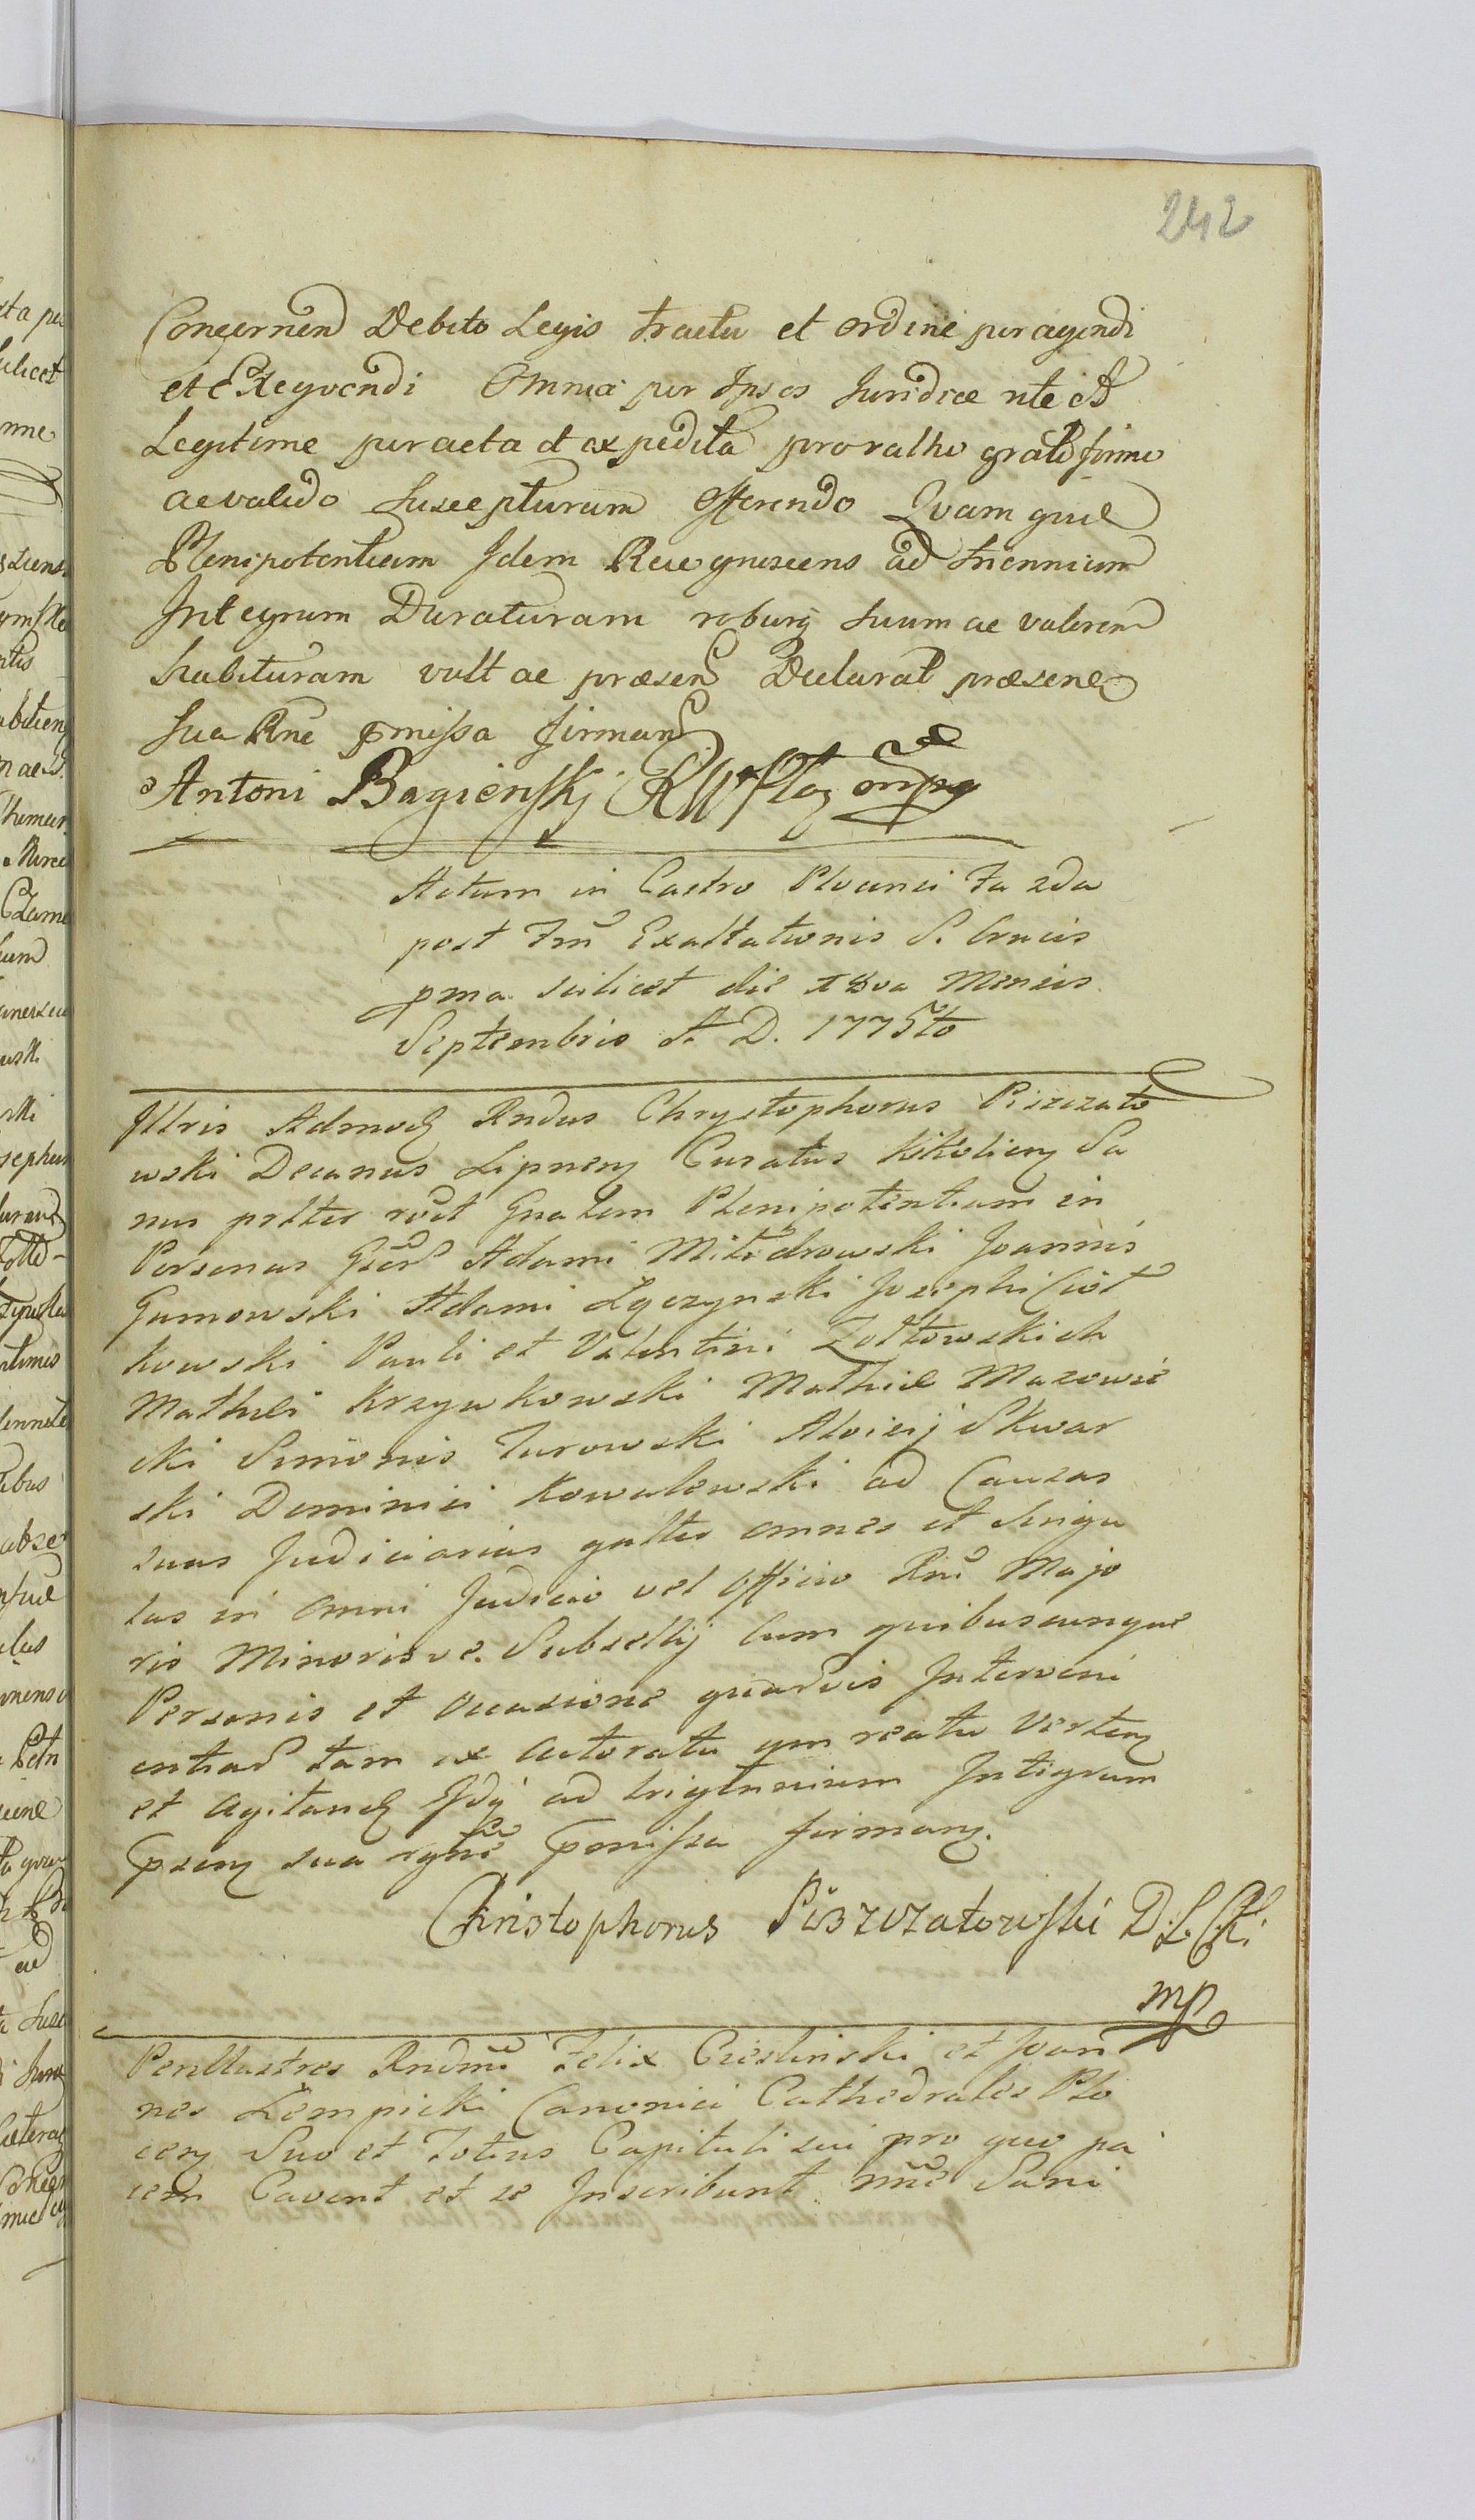 242
Concernen Debito Legis tractu et ordine peragendi
et Exeqvendi Omnia per Ipsos Juridice rite et
Legitime peracta et expedita pro ratho grato firmo
ac valido Suscepturum Offerendo Qvam quid
Plenipotentiam Idem Recognoscens ad triennium
Integrum Duraturam roburq suum ac valorem
habituram vult ac præsen Declarat præsene
sua Rne pmissa firman
Antoni Bagienskj mpa
Actum in Castro Plocensi Fa 2da
post Fm Exaltationis S. Crucis
pma scilicet die 18va Mensis
Septembris A. D. 1775to
Illris Admod Rndus Chrystophorus Piszczato
wski Decanus Lipnen Curatus Kikolien Sa
nus pntter roct Gnalem Plenipotentiam in
Personas Gsor Adami Mittodrowski Joannis
Gumowski Adami Łączynski Josephi Ciot
kowski Pauli et Valentini Zołtowskich
Mathei Krzywkowski Mathiæ Mazowie
cki Simonis Turowski Aloisij Skwar
ski Dominici Kowalewski ad Causas
suas Judiciarias gnlter omnes et Singu
las in omni Judicio vel Officio Rni Majo
ris Minorisve. Subsellij Cum quibuscunque
Personis et occasione quarvis Interveni
entiar tam ex actoratu qm reatu Verten
et agitand Idq ad trigennium Integrum
psen sua rgne pmissa firman.
Christophorus Piszczatowski D. L. C. K.
mp
Perillustres Rndmi Felix Cieslinski et Joan
nes Łempicki Canonici Cathedrales Plo
cen Suo et Totius Capituli sui pro quo pa
cem Cavent et se Inscribunt nne Sani